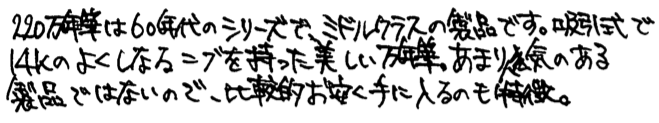 220万年筆は60年代のシリーズで、ミドルクラスの製品です。吸引式で
14kのよくしなるニブを持った美しい万年筆。あまり人気のある
製品ではないので、比較的お安く手に入るのも特徴。